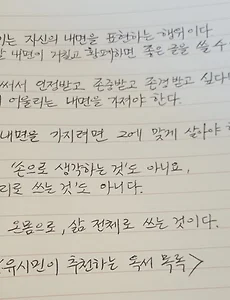 이는 자신의 내면을 표현하는 행위이다
내면이 거칠고 황폐하면 좋은 글을 쓸 수
써서 인정받고 존중받고 존경받고 싶다면
어울리는 내면을 가져야 한다.
내면을 가지려면 그에 맞게 살아야
'손으로 생각하는 것'도 아니요,
리로 쓰는 것'도 아니다.
온몸으로, 삶 전체로 쓰는 것이다.
<유시민이 추천하는 독서 목록>